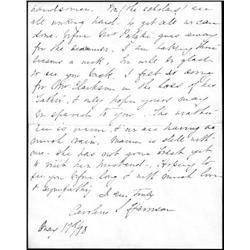 handsome. My scholars are
all working hard to get all we can
done before Mr. goes away
for the summer. I am taking three
lessons a week. We will be glad
to see you back. I feel so sorry
for Mr. Clarkson in the loss of his
Father, & only hope yours may
be spared to you. The weather
is so warm, & we are having so
much rain. Mamma is still with
me. She has not gone West yet
to visit her husband. Hoping to
see you before long & with much love
& sympathy
I am, Truly
Caroline S.
May 17th/93